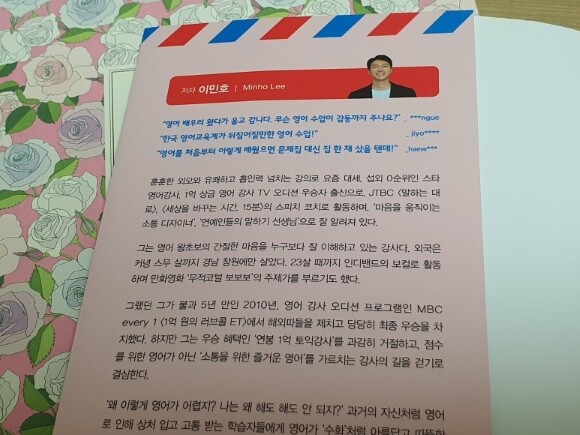 저자 이민호 | Minho Lee
“영어 배우러 왔다가 울고 갑니다. 무슨 영어 수업이 감동까지 주나요?” _ ***ngue
“한국 영어교육계가 뒤집어질만한 영어 수업!” _ jiyo****
“영어를 처음부터 이렇게 배웠으면 문제집 대신 집 한 채 샀을 텐데!” _haew***
훈훈한 외모와 유쾌하고 흡인력 넘치는 강의로 요즘 대세, 섭외 0순위인 스타
영어강사. 1억 상금 영어 강사 TV 오디션 우승자 출신으로, JTBC 〈말하는 대
로〉, 〈세상을 바꾸는 시간, 15분〉의 스피치 코치로 활동하며, ‘마음을 움직이는
소통 디자이너’, ‘연예인들의 말하기 선생님’으로 잘 알려져 있다.
그는 영어 왕초보의 간절한 마음을 누구보다 잘 이해하고 있는 강사다. 외국은
커녕 스무 살까지 경남 창원에만 살았다. 23살 때까지 인디밴드의 보컬로 활동
하며 만화영화 ‘무적코털 보보보’의 주제가를 부르기도 했다.
그랬던 그가 불과 5년 만인 2010년, 영어 강사 오디션 프로그램인 MBC
every 1 〈1억 원의 러브콜 ET〉에서 해외파들을 제치고 당당히 최종 우승을 차
지했다. 하지만 그는 우승 혜택인 ‘연봉 1억 토익강사’를 과감히 거절하고, 점수
를 위한 영어가 아닌 ‘소통을 위한 즐거운 영어’를 가르치는 강사의 길을 걷기로
결심한다.
‘왜 이렇게 영어가 어렵지? 나는 왜 해도 해도 안 되지?’ 과거의 자신처럼 영어
로 인해 상처 입고 고통 받는 학습자들에게 영어가 ‘수화’처럼 아름답고 따뜻한